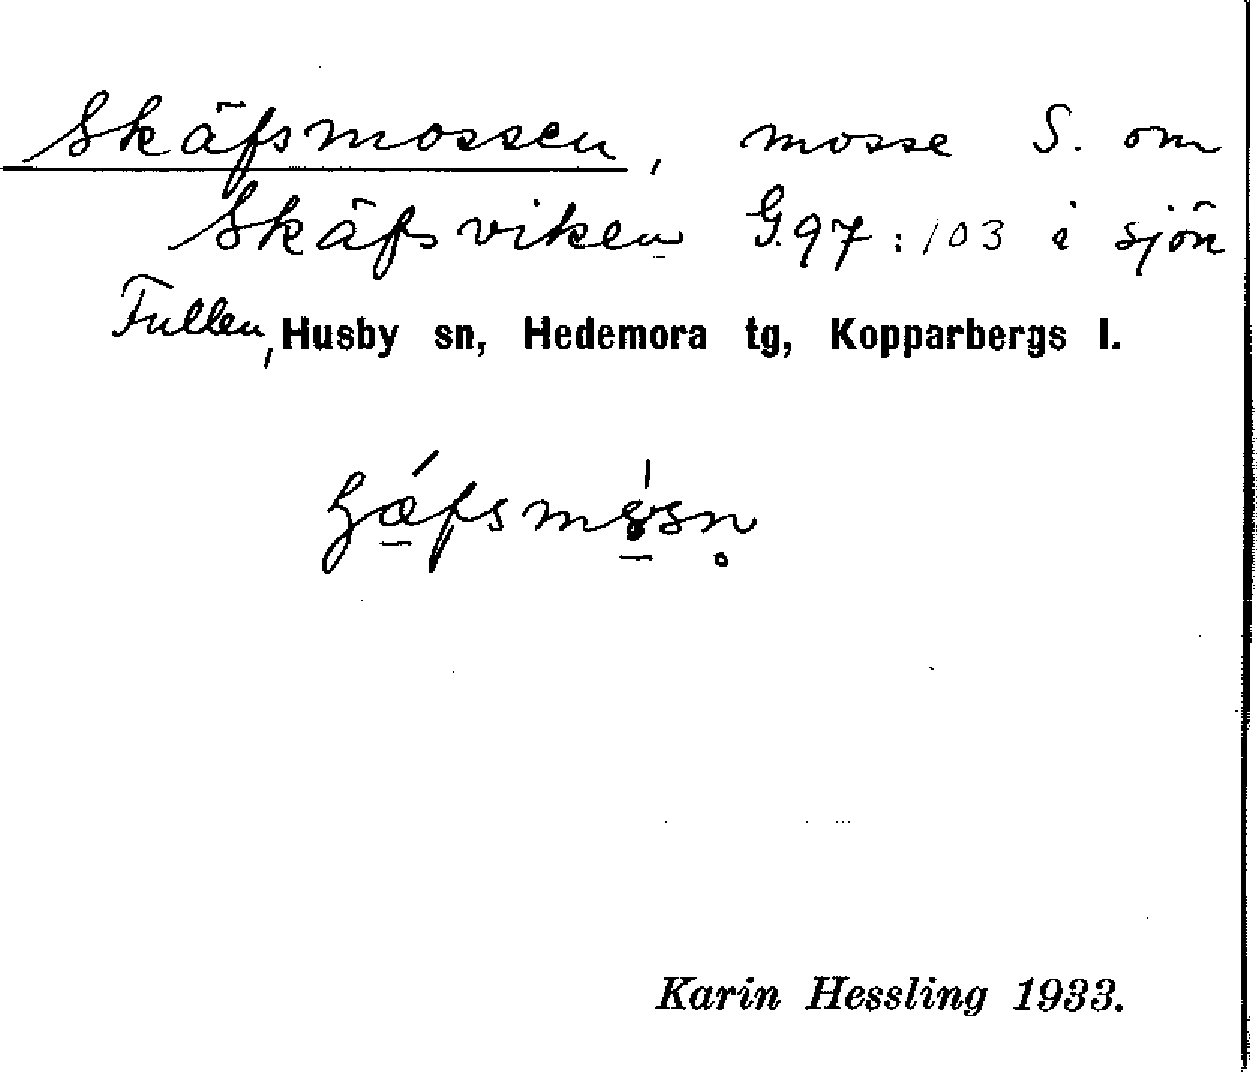 Skäfsmossen, mosse S. om
Skäfsviken G.97:103 i sjön
Fullen, Husby sn, Hedemora tg, Kopparbergs l.
Karin Hessling 1933.